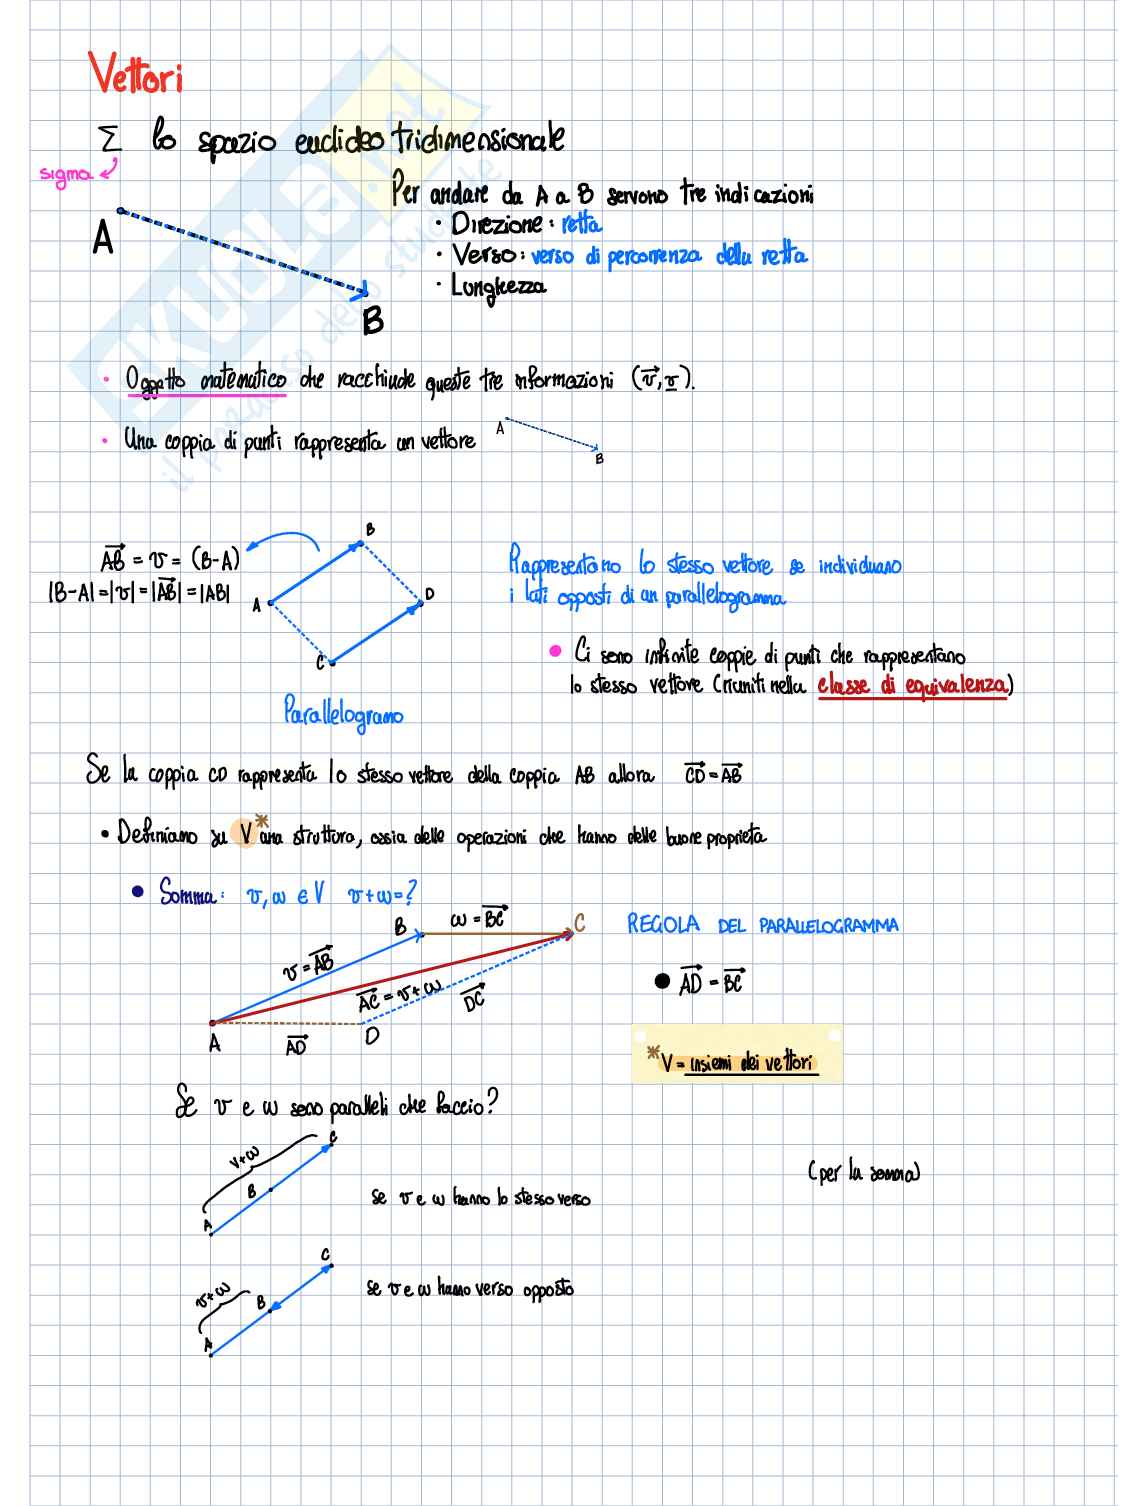 Vettori
Σ lo spazio euclideo tridimensionale
sigma
Per andare da A a B servono tre indicazioni
A
• Direzione: retta
• Verso: verso di percorrenza della retta
• Lunghezza
B
• Oggetto matematico che racchiude queste tre informazioni (v⃗, v).
• Una coppia di punti rappresenta un vettore
A
B
B
AB⃗ = v = (B-A)
|B-A| = |v| = |AB⃗| = |AB|
A
D
C
Parallelogramo
Rappresentano lo stesso vettore se individuano
i lati opposti di un parallelogramma
• Ci sono infinite coppie di punti che rappresentano
lo stesso vettore (riuniti nella classe di equivalenza)
Se la coppia CD rappresenta lo stesso vettore della coppia AB allora CD⃗ = AB⃗
• Definiamo su V* una struttura, ossia delle operazioni che hanno delle buone proprietà
• Somma: v, w ∈ V v+w=?
B
w = BC⃗
C
REGOLA DEL PARALLELOGRAMMA
v = AB⃗
AC⃗ = v+w
DC⃗
• AD⃗ = BC⃗
A
AD⃗
D
* V = insiemi dei vettori
Se v e w sono paralleli che faccio?
v+w
C
B
A
se v e w hanno lo stesso verso
(per la somma)
v+w
C
B
A
se v e w hanno verso opposto
SKUOLA.net
il paradiso dello studente